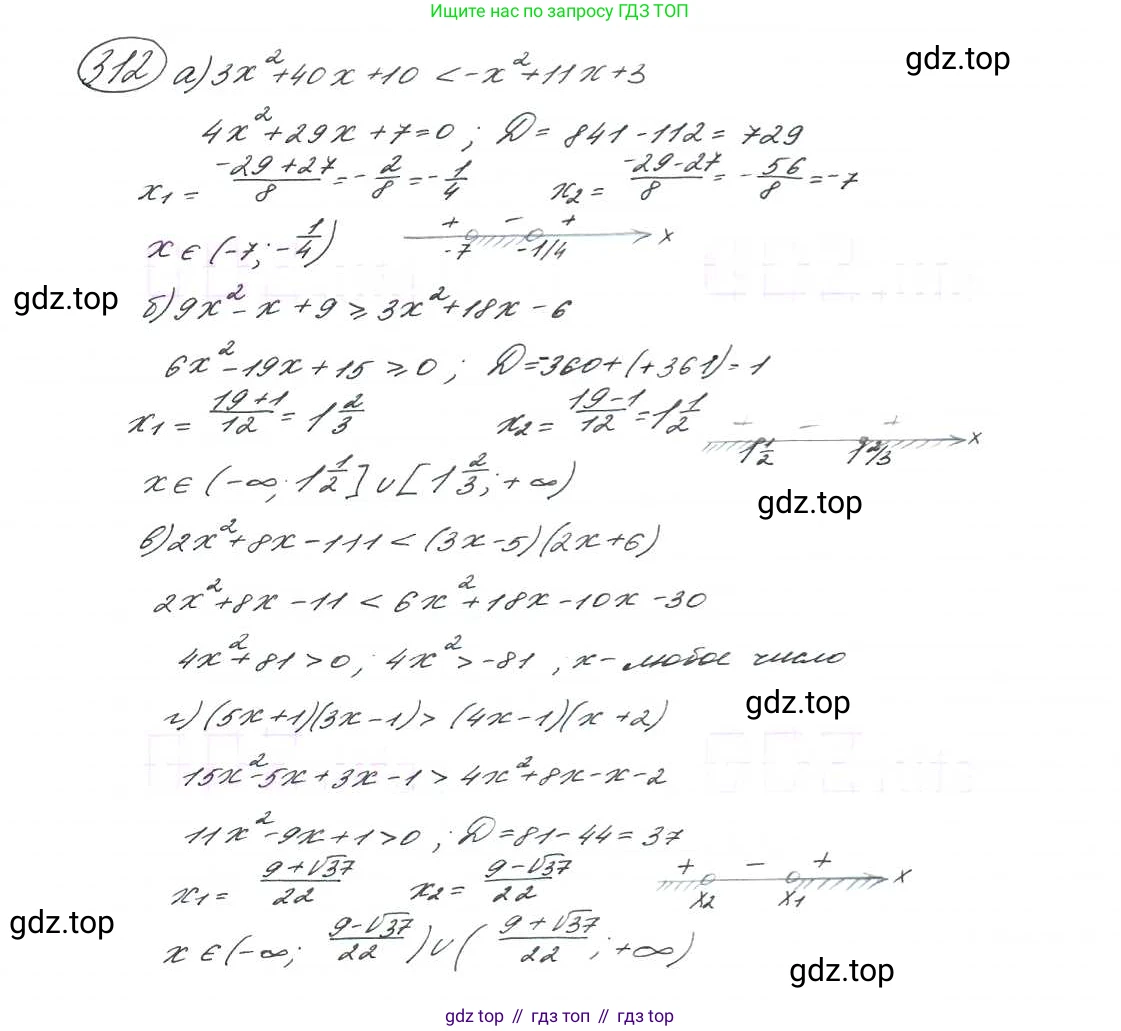 Ищите нас по запросу ГДЗ ТОП
gdz.top
312 а) 3x²+40x+10 < -x²+11x+3
4x²+29x+7=0 ; D = 841-112 = 729
x₁ = (-29+27)/8 = -2/8 = -1/4 x₂ = (-29-27)/8 = -56/8 = -7
x ∈ (-7; -1/4) + - + -7 -1/4 x
gdz.top
б) 9x²-x+9 ≥ 3x²+18x-6
6x²-19x+15 ≥ 0 ; D = -360+(+361) = 1
x₁ = (19+1)/12 = 1 2/3 x₂ = (19-1)/12 = 1 1/2 + - + 1 1/2 1 2/3 x
x ∈ (-∞; 1 1/2] ∪ [1 2/3; +∞)
gdz.top
в) 2x²+8x-111 < (3x-5)(2x+6)
2x²+8x-11 < 6x²+18x-10x-30
4x²+81>0 ; 4x²>-81 , x - любое число
gdz.top
г) (5x+1)(3x-1) > (4x-1)(x+2)
15x²-5x+3x-1 > 4x²+8x-x-2
11x²-9x+1>0 ; D = 81-44 = 37
x₁ = (9+√37)/22 x₂ = (9-√37)/22 + - + x₂ x₁ x
gdz.top
x ∈ (-∞; (9-√37)/22) ∪ ((9+√37)/22; +∞)
gdz.top
gdz top // гдз топ // gdz top